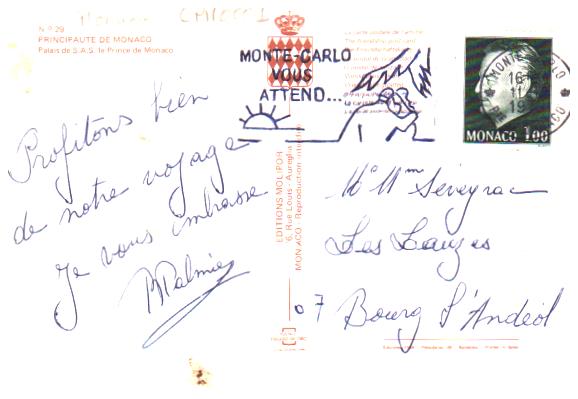 Monaco CM10001
N.º 29
PRINCIPAUTÉ DE MONACO
Palais de S.A.S. le Prince de Monaco
MONTE-CARLO
VOUS
ATTEND...
MONTE-CARLO
16
11
19
MONACO 1,00
Profitons bien
de notre voyage
Je vous embrasse
M Mme Séveyrac
Les Lauzes
07 Bourg St Andéol
EDITIONS MOLIPOR
6, Rue Louis-Aureglia
MONACO - Reproduction interdite